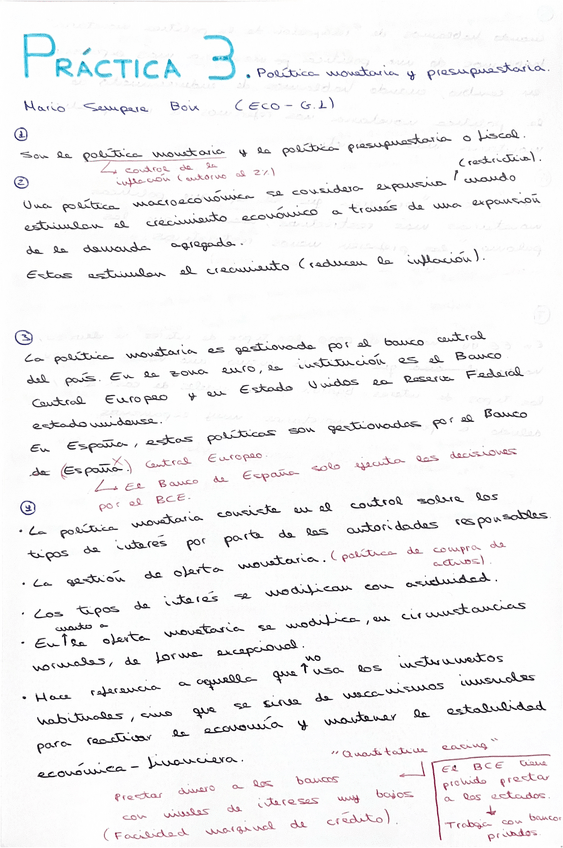 PRÁCTICA 3. Política monetaria y presupuestaria.
Mario Sempere Boix (ECO-G.1)
①
Son la política monetaria y la política presupuestaria o fiscal.
↳ control de la
inflación (entorno al 2%)
②
(restrictiva).
Una política macroeconómica se considera expansiva ↑ cuando
estimulan el crecimiento económico a través de una expansión
de la demanda agregada.
Estas estimulan el crecimiento (reducen la inflación).
③
La política monetaria es gestionada por el banco central
del país. En la zona euro, la institución es el Banco
Central Europeo y en Estado Unidos la Reserva Federal
estadounidense.
En España, estas políticas son gestionadas por el Banco
de (España.) X Central Europeo.
↳ El Banco de España solo ejecuta las decisiones
por el BCE.
④
· La política monetaria consiste en el control sobre los
tipos de interés por parte de las autoridades responsables
· La gestión de oferta monetaria. (política de compra de
activos).
· Los tipos de interés se modifican con asiduidad.
cuanto a
· En ↑ la oferta monetaria se modifica, en circunstancias
normales, de forma excepcional.
no
· Hace referencia a aquella que ↑ usa los instrumentos
habituales, sino que se sirve de mecanismos inusuales
para reactivar la economía y mantener la estabilidad
económica - financiera.
"Quantitative easing"
Prestar dinero a los bancos
con niveles de intereses muy bajos
(Facilidad marginal de crédito).
El BCE tiene
prohido prestar
a los estados.
↓
Trabaja con bancos
privados.